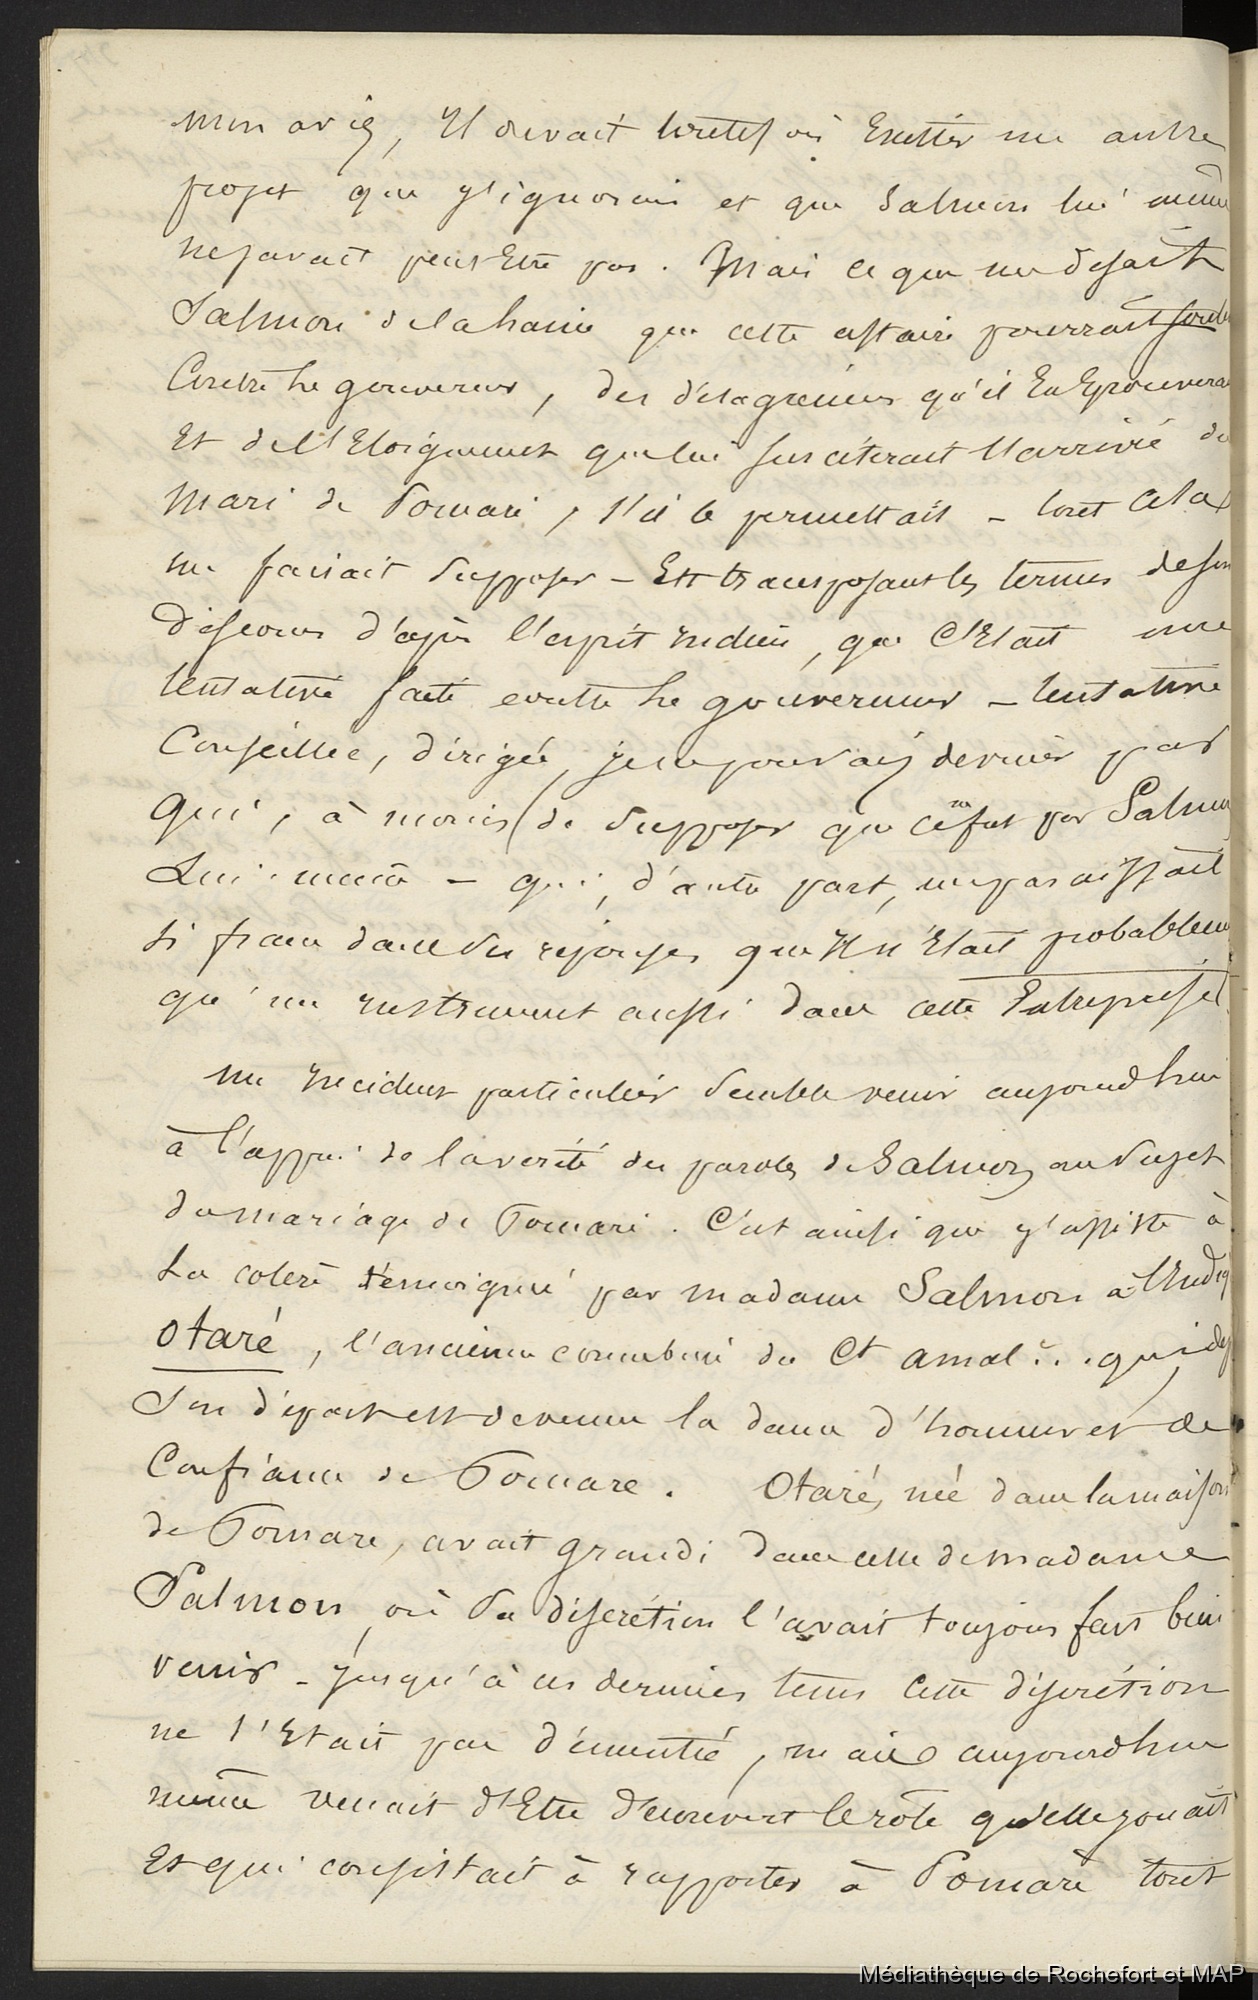 mon avis, Il devait toutefois Exister un autre
projet que j'ignorais et que Salmon lui même
ne savait peut Etre pas. Mais ce que me disait
Salmon de la haine que cette affaire pourrait
Contre le gouverneur, des désagréments qu'il En Eprouvera
Et de l'Eloignement que lui susciterait l'arrivée du
mari de Pomaré, s'il le permettait - tout cela
me faisait supposer - En transposant les termes de son
discours d'après l'esprit indien, que C'Etait une
tentative faite contre le gouverneur - tentative
Conseillée, dirigée, je ne pouvais deviner par
qui, à moins de supposer que ce ne fut par Salmon
Lui même - qui, d'autre part, me paraissait
si franc dans ses réponses qu'Il n'Etait probablement
qu'un instrument aussi dans cette Entreprise.
un incident particulier semble venir aujourd'hui
à l'appui de la vérité des paroles de Salmon, au sujet
du mariage de Pomaré. C'est ainsi que j'assiste à
La colère témoignée par madame Salmon à
Otaré, l'ancienne concubine du Ct amal... qui
Son départ est devenue la dame d'honneur et de
Confiance de Pomare. Otaré, née dans la maison
de Pomare, avait grandi dans celle de madame
Salmon, où sa discrétion l'avait toujours fait bien
venir - jusqu'à ces derniers tems cette discrétion
ne s'Etait pas démentie, mais aujourd'hui
même venait d'Etre découvert le rôle qu'elle jouait
Et qui consistait à rapporter à Pomaré tout
Médiathèque de Rochefort et MAP